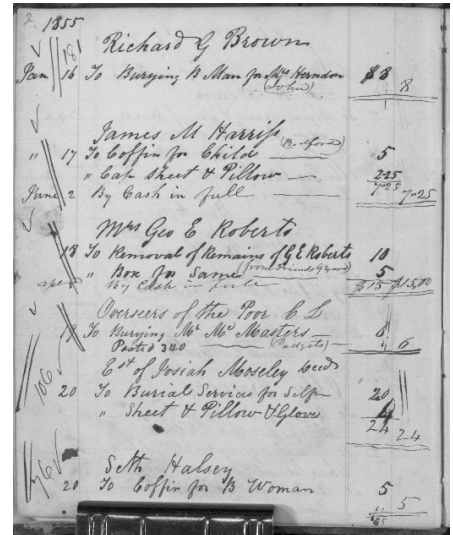 2 1855
181 Richard G Brown
Jan 16 To Burying B Man for Mrs Herndon $8 8
(John)
James M Harriss (Bedford)
" 17 To Coffin for Child 5
" Cap Sheet & Pillow 2.25
7.25
June 2 By Cash in full 7.25
Mrs Geo E Roberts
18 To Removal of Remains of G E Roberts 10
" Box for Same 5
By Cash in full $15 $15,00
Overseers of the Poor C L
19 To Burying Mr Mc Masters 6
Posted 340 6
Est of Josiah Moseley Decd
106
20 To Burial Services for Self 20
" Sheet & Pillow & Glove 4
24 24
76 Seth Halsey
20 To Coffin for B Woman 5
5